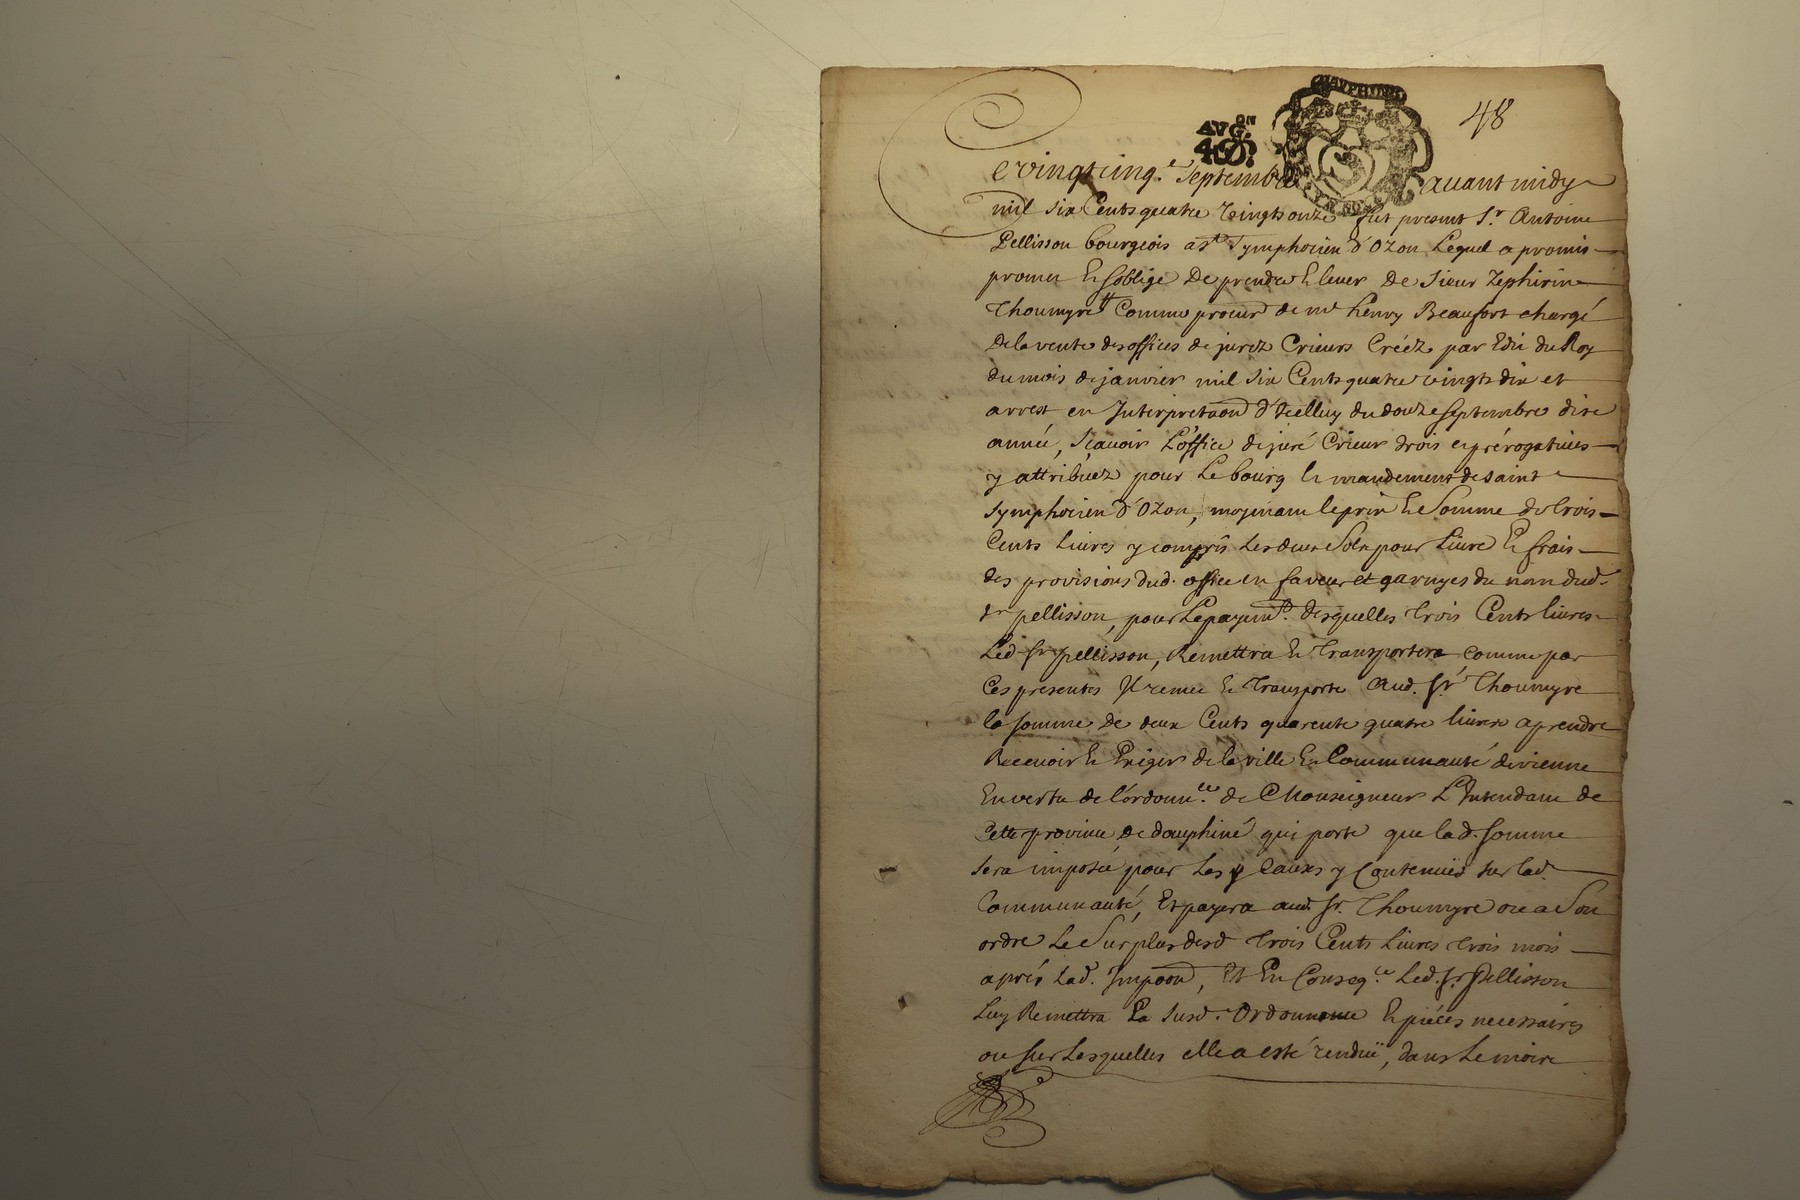 DAUPHINE
AVG.ON
48
Le vingtcinq.e Septembre avant midy
mil six Cents quatre vingts onze fut present S.r Antoine
Pellisson bourgeois a S.t Symphorien d'Ozon Lequel a promis
promet Et soblige De prendre Et lever De Sieur Zephirin
Thoumyre Comme procur de m.e henry Beaufort chargé
De la vente des offices de jurez Crieurs Créez par Edit du Roy
du mois de janvier mil six Cents quatre vingts dix et
arrest en Interpretaon d'Icelluy du douze Septembre dite
année, Scavoir L'office de juré Crieur drois et prérogatives
y attribuez pour Le bourg Et mandement de saint
Symphorien d'Ozon, moyenant le prix Et Somme de trois
Cents Livres y compris Les deux Sols pour Livre Et frais
des provisions dud. office en faveur et garnyes du nom dud.
Sr pellisson, pour Le payem.t desquelles trois Cents livres
Led Sr pellisson, Remettra Et Transportera comme par
Ces presentes Il remet Et Transporte Aud. Sr Thoumyre
la somme de deux Cents quarente quatre livres a prendre
Recevoir Et Exiger de la ville Et Communauté de vienne
En vertu de L'ordonn.ce de Monseigneur L'Intendant de
Cette province de dauphiné qui porte que lad. somme
sera imposée pour Les Causes y Contenües sur lad.
Communauté, Et payera aud. Sr. Thoumyre ou a Son
ordre Le Surplus desd trois Cents Livres trois mois
aprés Lad. Impoon, Et En Conseq.ce Led. Sr. Pellisson
Luy Remettra La susd. Ordonnance Et piéces necessaires
ou sur Lesquelles elle a esté rendüe, dans Le moire